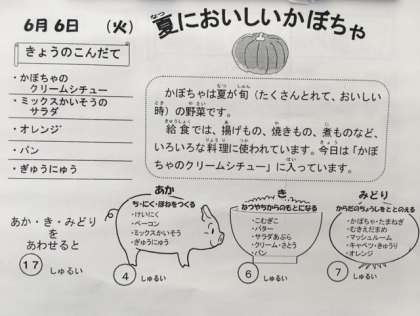 6月6日 （火）
夏においしいかぼちゃ
きょうのこんだて
・かぼちゃの
クリームシチュー
・ミックスかいそうの
サラダ
・オレンジ
・パン
・ぎゅうにゅう
かぼちゃは夏が旬（たくさんとれて、おいしい
時）の野菜です。
給食では、揚げもの、焼きもの、煮ものなど、
いろいろな料理に使われています。今日は「かぼ
ちゃのクリームシチュー」に入っています。
あか・き・みどり
を
あわせると
17 しゅるい
あか
ち・にく・ほねをつくる
・けいにく
・ベーコン
・ミックスかいそう
・ぎゅうにゅう
4 しゅるい
き
ねつやちからのもとになる
・こむぎこ
・バター
・サラダあぶら
・クリーム・さとう
・パン
6 しゅるい
みどり
からだのちょうしをととのえる
・かぼちゃ・たまねぎ
・むきえだまめ
・マッシュルーム
・キャベツ・きゅうり
・オレンジ
7 しゅるい